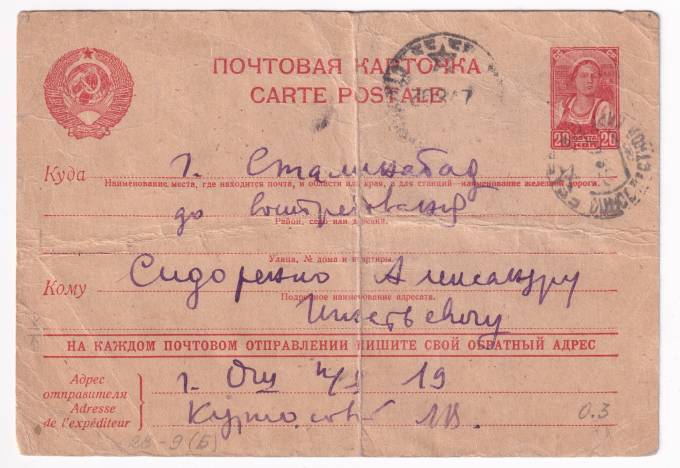 ПОЧТОВАЯ КАРТОЧКА
CARTE POSTALE
20 ПОЧТА 20
КОП
Куда г. Сталинабад
Наименование места, где находится почта, и области или края, а для станций наименование железной дороги.
до востребования
Район, село или деревня.
Улица, № дома и квартиры.
Кому Сидоренко Александру
Подробное наименование адресата.
НА КАЖДОМ ПОЧТОВОМ ОТПРАВЛЕНИИ ПИШИТЕ СВОЙ ОБРАТНЫЙ АДРЕС
Адрес
отправителя
Adresse
de l'expéditeur
г. Ош п/я 19
0.3